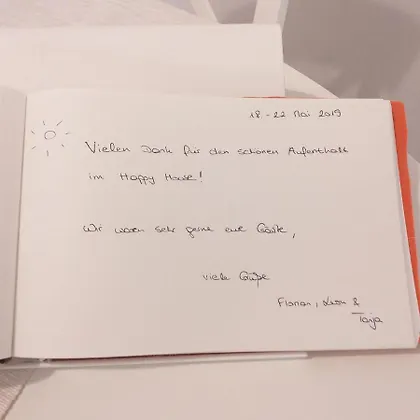 18. - 22 Mai 2019
Vielen Dank für den schönen Aufenthalt
im Happy House!
Wir waren sehr gerne eure Gäste,
viele Grüße
Florian, &
Tanja